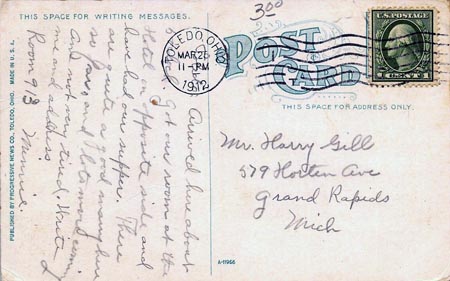 THIS SPACE FOR WRITING MESSAGES.
300
TOLEDO, OHIO
MAR 25
11-PM
1912
POST
CARD
U.S. POSTAGE
THIS SPACE FOR ADDRESS ONLY.
Arrived here about
Got our room at the
Hotel on opposite side and
have had our supper. There
are quite a good many here
so far and lots more coming
Am not very tired. Write
me and address
Room 913 Minnie.
Mr. Harry Gill
579 Horton Ave
Grand Rapids
Mich
A-11966
PUBLISHED BY PROGRESSIVE NEWS CO., TOLEDO, OHIO. MADE IN U.S.A.